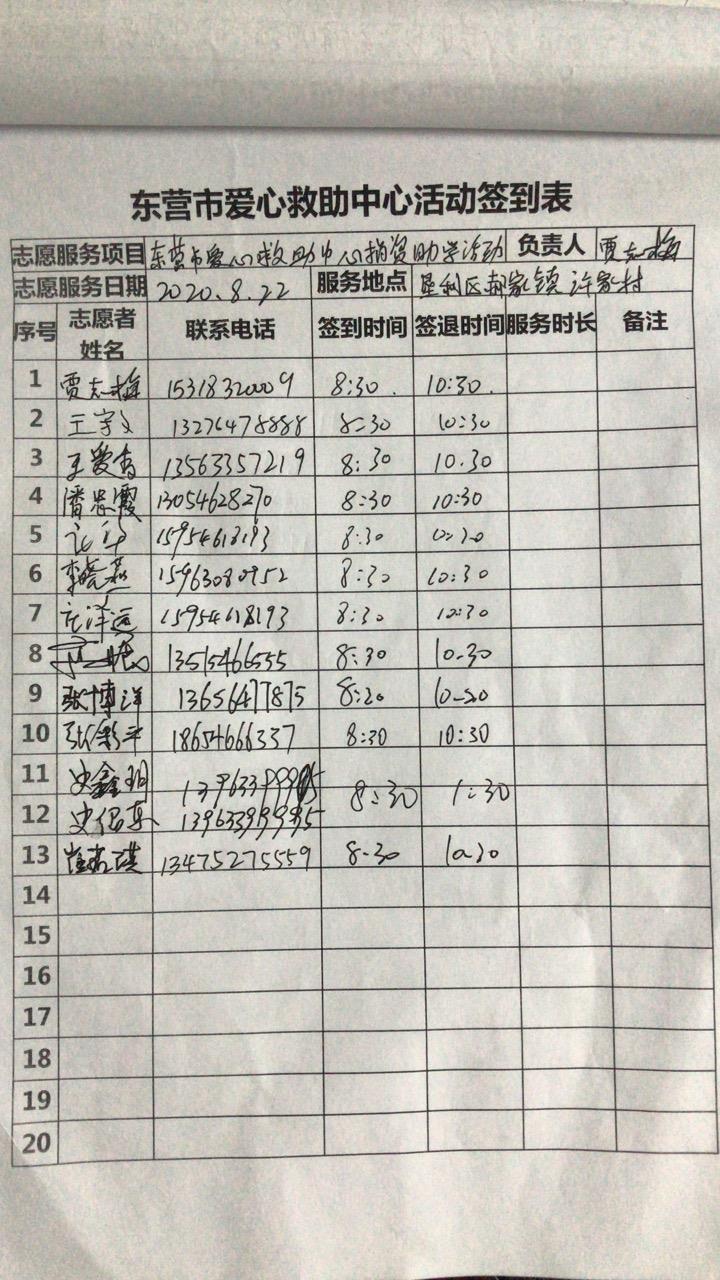 东营市爱心救助中心活动签到表
志愿服务项目 东营市爱心救助中心捐资助学活动 负责人 贾志梅
志愿服务日期 2020.8.22 服务地点 垦利区郝家镇许家村
序号 志愿者姓名 联系电话 签到时间 签退时间 服务时长 备注
1 贾志梅 15318320009 8:30. 10:30.
2 王宇文 13276478888 8:30 10:30
3 王爱香 13563357219 8:30 10.30
4 潘忠霞 13054628270 8:30 10:30
5 15954618193 8:30 10:30
6 李晓燕 15963080952 8:30 10:30
7 15954618193 8:30 10:30
8 13515466555 8:30 10-30
9 张博洋 13656477875 8:20 10-20
10 张彩平 18654666337 8:30 10:30
11 史鑫玥 13963399995 8:30 1:30
12 13963399995
13 13475275559 8-30 10-30
14
15
16
17
18
19
20